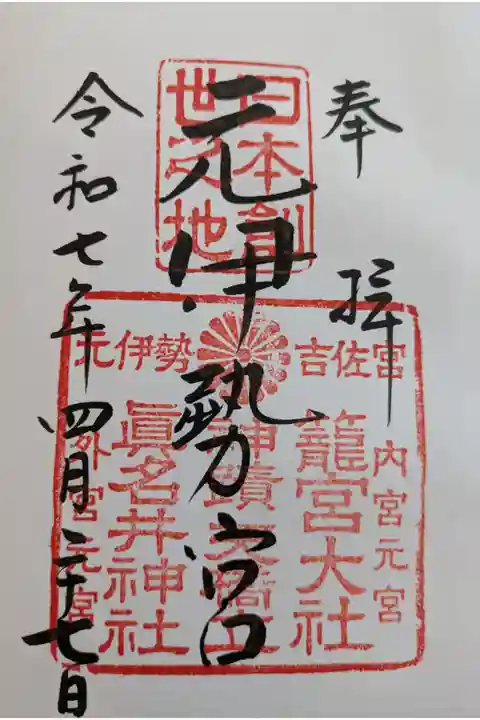 奉拝
日本創
世之地
元伊勢宮
元伊勢 吉佐宮
内宮元宮
籠宮大社
神蹟天橋立
眞名井神社
外宮元宮
令和七年四月二十七日